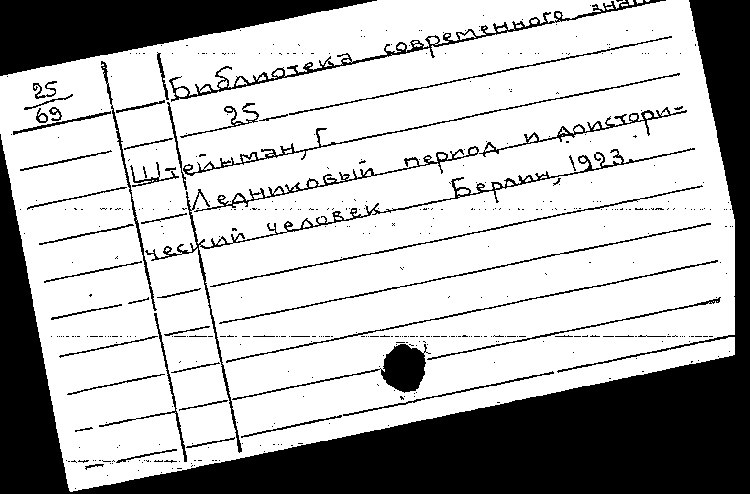 25
69
Библиотека современного
25.
Штейнман, Г.
Ледниковый период и доистори-
ческий человек. Берлин, 1923.